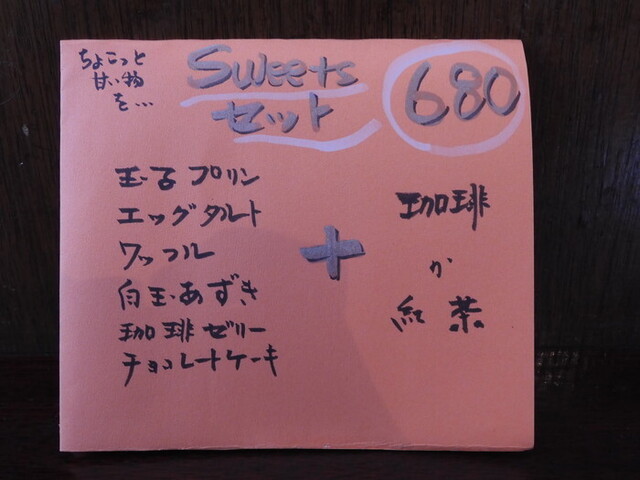 ちょこっと
甘い物
を...
Sweets
セット
680
玉子プリン
エッグタルト
ワッフル
白玉あずき
珈琲ゼリー
チョコレートケーキ
+
珈琲
か
紅茶